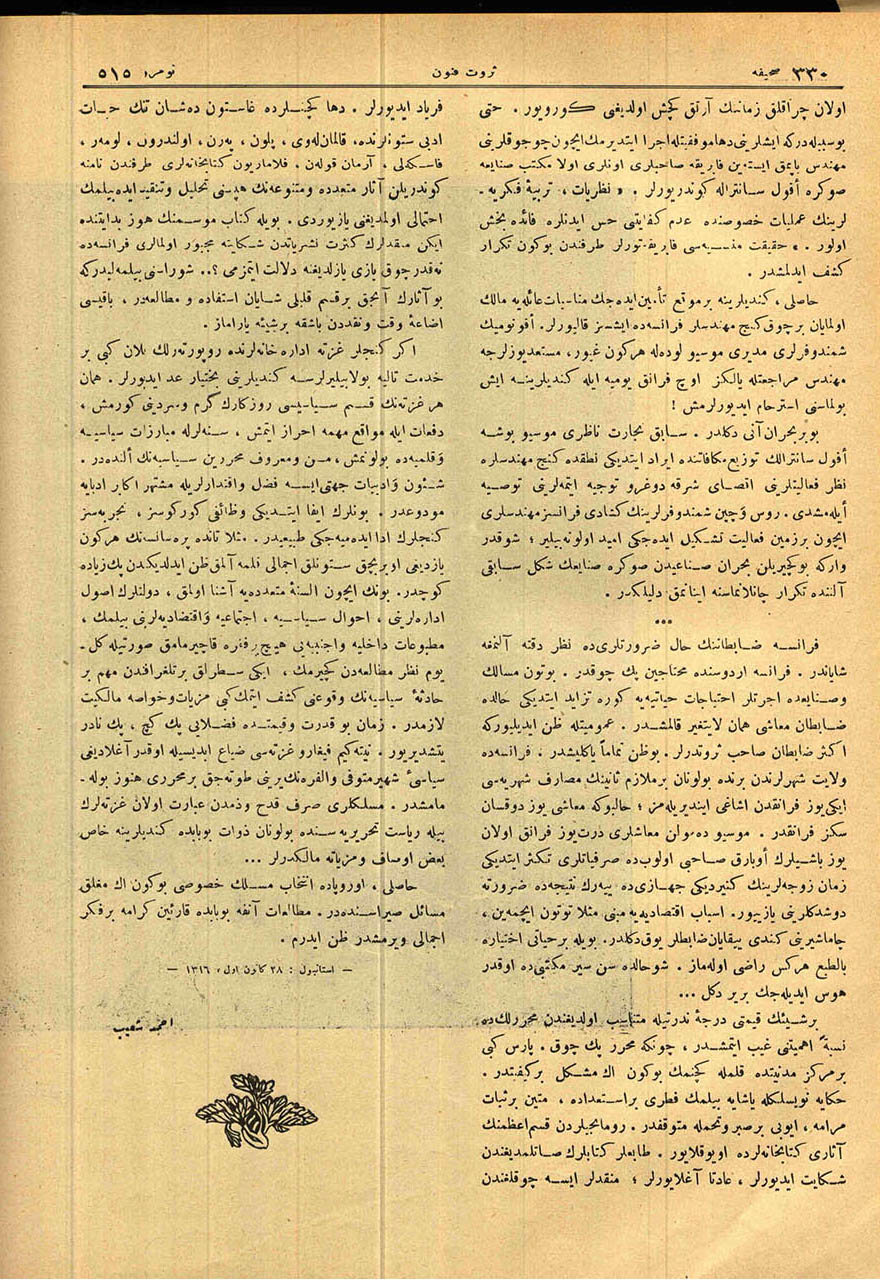 ٣٣٠ صحیفه
ثروت فنون
نومرو ٥١٥
اولان چراقلق زماننك آرتق كچمش اولدیغنی كوروبور . حتی
بوسیله‌دركه ایشلرینی دها موفقیتله اجرا ایتدیرمك ایچون چوجوقلرینی
مهندس یاپمق ایسته‌ین فابریقه صاحبلری اونلری اولا مكتب صنایعه
صوكره أقول سانتراله كوندریورلر . « نظریات ، تربیهٔ فكریه ـ
لرینك عملیات خصوصنده عدم كفایتنی حس ایدنلره فائده‌بخش
اولور . » حقیقت فابریقه‌تورلر طرفندن بوكون تكرار
كشف ایدلمشدر .
حاصلی ، كندیلرینه بر موقع تأمین ایده‌جك مناسبات عائله‌یه مالك
اولمایان برچوق كنج مهندسلر فرانسه‌ده ایشسز قالیورلر. أقونومیك
شمندوفرلری مدیری موسیو لوده‌له هركون غیور، مستعد یوزلرجه
مهندس مراجعتله یالكز اوچ فرانق یومیه ایله كندیلرینه ایش
بولماسنی استرحام ایدیورلرمش !
بو بر بحران آنی دكلدر . سابق تجارت ناظری موسیو بوشه
أقول سانترالك توزیع مكافاتنده ایراد ایتدیكی نطقده كنج مهندسلره
نظر فعالیتلرینی اقصای شرقه دوغرو توجیه ایتمه‌لرینی توصیه
أیله‌مشدی . روس وچین شمندوفرلرینك كشادی فرانسز مهندسلری
ایچون بر زمین فعالیت تشكیل ایده‌جكی امید اولونه‌بیلیر ؛ شوقدر
واركه بوكچیریلن بحران صناعیدن صوكره صنایعك شكل سابقی
آلنده تكرار جانلانماسنه اینانمق دلیلكدر .
***
فرانسه ضابطاننك حال ضرورتلری‌ده نظر دقته آلنمغه
شایاندر . فرانسه اردوسنده محتاجین پك چوقدر . بوتون مسالك
وصنایعده اجرتلر احتیاجات حیاتیه‌یه كوره تزاید ایتدیكی حالده
ضابطان معاشی همان لایتغیر قالمشدر . عمومیتله ظن ایدیلیوركه
اكثر ضابطان صاحب ثروتدرلر . بوظن تماماً یاكلیشدر . فرانسه‌ده
ولایت شهرلرندن برنده بولونان برملازم ثانینك مصارف شهریه‌سی
ایكی یوز فرانقدن اشاغی ایندیریله‌مز ؛ حالبوكه معاشی یوز دوقسان
سكز فرانقدر . موسیو ده‌مولن معاشلری درت یوز فرانق اولان
یوز باشیلرك أوبارق صاحبی اولوب‌ده صرفیاتلری تكثر ایتدیكی
زمان زوجه‌لرینك كتیردیكی جهازی‌ده ییه‌رك نتیجه‌ده ضرورته
دوشدكلرینی یازییور. اسباب اقتصادیه‌یه مبنی مثلا توتون ایچمه‌ین ،
چاماشیرینی كندی ییقایان ضابطلر یوق دكلدر. بویله برحیاتی اختیاره
بالطبع هركس راضی اوله‌ماز . شوحالده سن سیر مكتبی‌ده اوقدر
هوس ایدیله‌جك بر یر دكل ...
برشیئك قیمتی درجهٔ ندرتیله متناسب اولدیغندن محررلك‌ده
نسبةً اهمیتنی غیب ایتمشدر ، چونكه محرر پك چوق . پارس كبی
برمركز مدنیتده قلمله كچنمك بوكون اك مشكل بركیفیتدر .
حكایه نویسلكله یاشایه بیلمك فطری براستعداده ، متین برثبات
مرامه ، ایوبی برصبر وتحمله متوقفدر . رومانجیلردن قسم اعظمنك
آثاری كتابخانه‌لرده اویوقلایور . طابعلر كتابلرك صاتلمدیغندن
شكایت ایدیورلر ، عادتا آغلایورلر ؛ منقدلر ایسه چوقلغندن
فریاد ایدیورلر . دها كچنلرده غاستون ده‌شان تك حیات
ادبی ستونلرنده، قالمان‌له‌وی ، پلون ، په‌رن ، اولندروف ، لومه‌ر ،
فاسكه‌لی ، آرمان قوله‌ن . فلاماریون كتابخانه‌لری طرفندن نامنه
كوندریلن آثار متعدده ومتنوعه‌نك هپسنی تحلیل وتنقید ایده‌بیلمك
احتمالی اولمدیغنی یازیوردی . بویله كتاب موسمنك هنوز بدایتنده
ایكن منقدلرك كثرت نشریاتدن شكایته مجبور اولمالری فرانسه‌ده
نه‌قدر چوق یازی یازلدیغنه دلالت ایتمزمی ؟.. شوراسنی بیلمه‌لیدركه
بو آثارك آنجق برقسم قلیلی شایان استفاده و مطالعه‌در ، باقیسی
اضاعهٔ وقت ونقددن باشقه برشیئه یاراماز .
اكر كنجلر غزته اداره‌خانه‌لرنده روپورته‌رلك یلان كبی بر
خدمت تالیه بولابیلیرلرسه كندیلرینی بختیار عد ایدیورلر . همان
هر غزته‌نك قسم سیاسیسی روزكارك گرم وسردینی كورمش ،
دفعات ایله مواقع مهمه احراز ایتمش ، سنه‌لرله مبارزات سیاسیه
وقلمیه‌ده بولونمش ، مسن ومعروف محررین سیاسیه‌نك ألنده‌در .
شئون وادبیات جهتی ایسه فضل واقتدارلریله مشتهر اكابر ادبایه
مودوعدر . بونلرك ایفا ایتدیكی وظائفی كوركوسز ، تجربه‌سز
كنجلرك ادا ایده‌میه‌جكی طبیعیدر . مثلا تانده پره‌سانسه‌نك هركون
یازدیغی اوبربچق ستونلق اجمالی قلمه آلمق ظن ایدلدیكندن پك زیاده
كوچدر. بونك ایچون السنهٔ متعدده‌یه آشنا اولمق ، دولتلرك اصول
اداره‌لرینی ، احوال سیاسیه ، اجتماعیه واقتصادیه‌لرینی بیلمك ،
مطبوعات داخلیه واجنبیه‌یی هیچ برفقره قاچیرمامق صورتیله كل ـ
یوم نظر مطالعه‌دن كچیرمك ، ایكی سطرلق برتلغرافدن مهم بر
حادثهٔ سیاسیه‌نك وقوعنی كشف ایتمك كبی مزیات وخواصه مالكیت
لازمدر . زمان بو قدرت وقیمتده فضلایی پك كچ ، پك نادر
یتشدیریور . نیته‌كیم فیغارو غزته‌سی ضیاع ابدیسیله اوقدر آغلادیغی
سیاسئ شهیر متوفی والفره‌نك یرینی طوته‌جق برمحرری هنوز بوله ـ
مامشدر . مسلكلری صرف قدح وذمدن عبارت اولان غزته‌لرك
بیله ریاست تحریریه‌سنده بولونان ذوات بوبابده كندیلرینه خاص
بعض اوصاف ومزیاته مالكدرلر ...
حاصلی ، اوروپاده انتخاب مسلك خصوصی بوكون اك مغلق
مسائل صیراسنده‌در . مطالعات آنفه بوبابده قارئین كرامه برفكر
اجمالی ویرمشدر ظن ایدرم .
— استانبول : ٢٨ كانون اول ، ١٣١٦ —
احمد شعیب